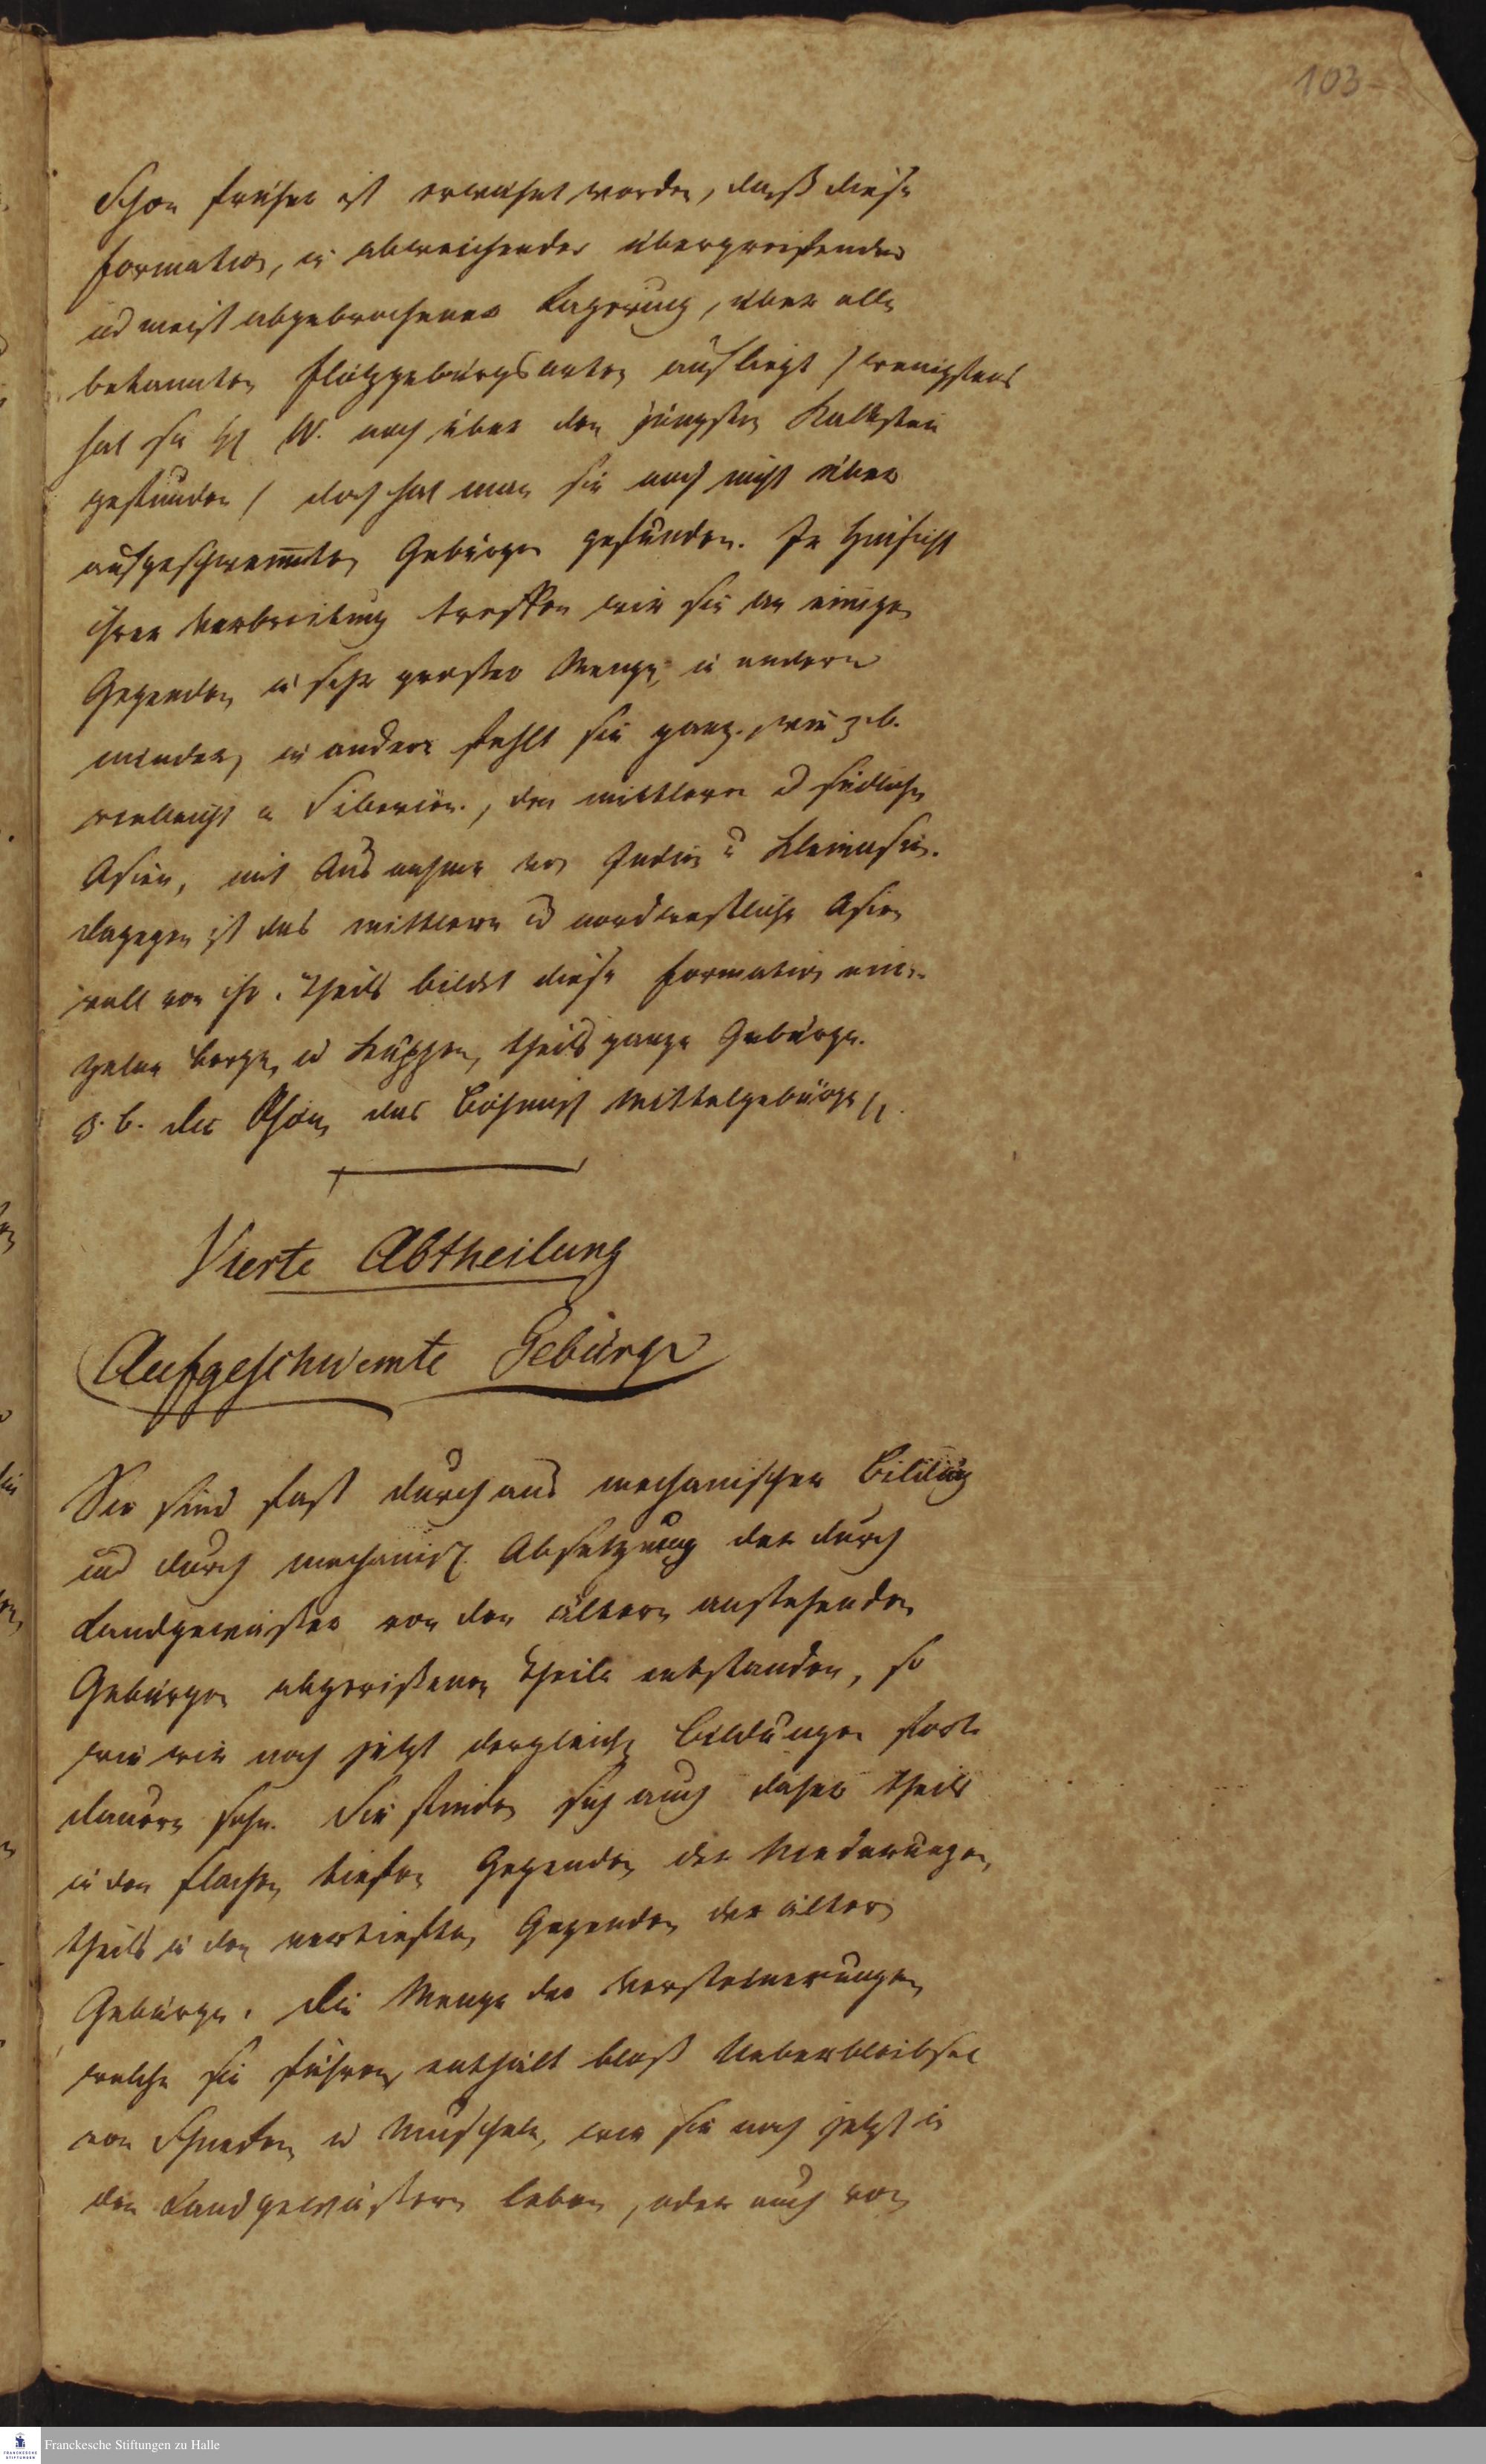 103
Schon früher ist erwähnt worden, daß diese
Formation, in abweichender übergreifender
und meist abgebrochener Lagerung, über alle
bekannten Flötzgebürgsarten aufliegt / wenigstens
hat sie H W. noch über den jüngsten Kalkstein
gefunden / doch hat man sie noch nicht über
aufgeschwemten Gebürgen gefunden. In Hinsicht
ihrer Verbreitung treffen wir sie in einigen
Gegenden in sehr großer Menge, in andern
minder, in andern fehlt sie ganz, wie z.b.
vielleicht in Siberien, den mittlern u südlichen
Asien, mit Ausnahme von Indien u Kleinasien.
dagegen ist das mittlere u nordwestliche Asien
voll von ihr. Theils bildet diese Formation ein-
zelne Berge, u Kuppen, theils ganze Gebürge.
z. b. die Rhön, das Böhmisch Mittelgebürge
Vierte Abtheilung
Aufgeschwemte Gebürge
Sie sind fast durchaus mechanischer Bildung
und durch mechanisch. Absetzung der durch
Landgewässer von den ältern anstehenden
Gebürgen abgerißenen Theile entstanden, so
wie wir noch jetzt dergleichen Bildungen fort
dauern sehn. Sie finden sich auch daher theils
in den flachen tiefen Gegenden der Niederungen,
theils in den vertieften Gegenden der ältern
Gebürge. Die Menge der Versteinerungen
welche sie führen, enthält bloß Ueberbleibsel
von Schnecken u Muscheln, wie sie noch jetzt in
den Landgewässern leben, oder auch von
Franckesche Stiftungen zu Halle